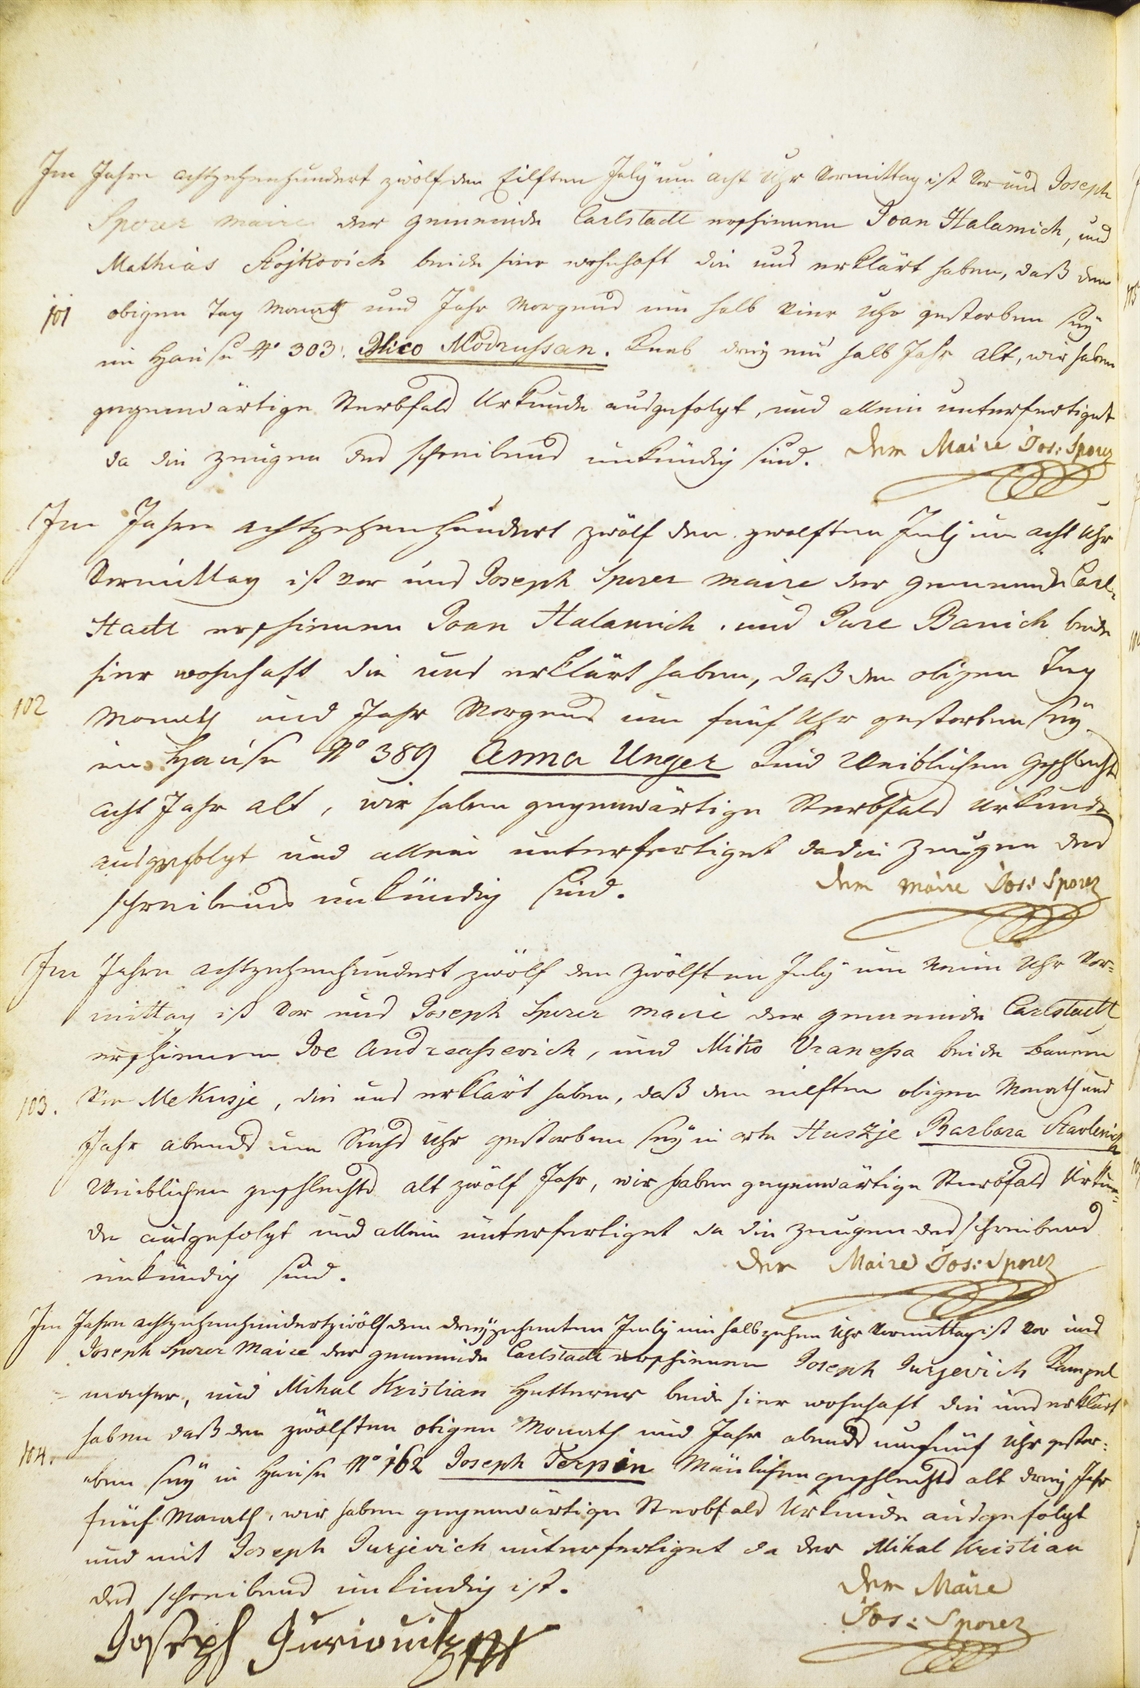 Im Jahre achtzehenhundert zwölf den Eilften July um acht Uhr Vormittag ist vor uns Joseph
Sporer Maire der Gemeinde Carlstadt erschienen Ivan Halamich, und
Mathias Stojkovich beide hier wohnhaft die uns erklärt haben, daß den
101 obigen Tag Monath und Jahr Morgens um halb vier Uhr gestorben sey
im Hause N° 303. Mico Modrussan. Knab drey ein halb Jahr alt, wir haben
gegenwärtige Sterbfalls Urkunde ausgefolgt, und allein unterfertiget
da die Zeugen des schreibens unkündig sind. Der Maire Jos: Sporer
Im Jahre achtzehenhundert zwölf den zwölften July um acht Uhr
Vormittag ist vor uns Joseph Sporer Maire der Gemeinde Carl-
stadt erschienen Ivan Halamich, und Jure Banich beide
hier wohnhaft die uns erklärt haben, daß den obigen Tag
102 Monath und Jahr Morgens um fünf Uhr gestorben sey
im Hause N° 389 Anna Unger Kind Weiblichen Geschlechts
acht Jahr alt, wir haben gegenwärtige Sterbfalls Urkunde
ausgefolgt und allein unterfertiget da die Zeugen des
schreibens unkündig sind. Der Maire Jos: Sporer
Im Jahre achtzehenhundert zwölf den zwölften July um neun Uhr Vor-
mittag ist vor uns Joseph Sporer Maire der Gemeinde Carlstadt
erschienen Ive Andreassevich, und Miko Vranessa beide Bauern
103. von Mekusje, die uns erklärt haben, daß den eilften obigen Monath und
Jahr abends um Sechs Uhr gestorben sey in orte Huszje Barbara Stavlenich
Weiblichen geschlechts alt zwölf Jahr, wir haben gegenwärtige Sterbfalls Urkun-
de ausgefolgt und allein unterfertiget da die Zeugen des schreibens
unkündig sind. Der Maire Jos: Sporer
Im Jahre achtzehenhundertzwölf den dreyzehenten July um halb zehen Uhr Vormittag ist vor uns
Joseph Sporer Maire der Gemeinde Carlstadt erschienen Joseph Jurjevich
macher, und Mihal Kristian Hutterer beide hier wohnhaft die uns erklärt
haben daß den zwölften obigen Monath und Jahr abends um fünf Uhr gestor-
104. ben sey in Hause N° 162 Joseph Terpin Mänlichen geschlechts alt drey Jahr
fünf Monath, wir haben gegenwärtige Sterbfalls Urkunde ausgefolgt
und mit Joseph Jurjevich unterfertiget da der Mihal Kristian
des schreibens unkündig ist. Der Maire
Joseph Juriovitz Jos: Sporer